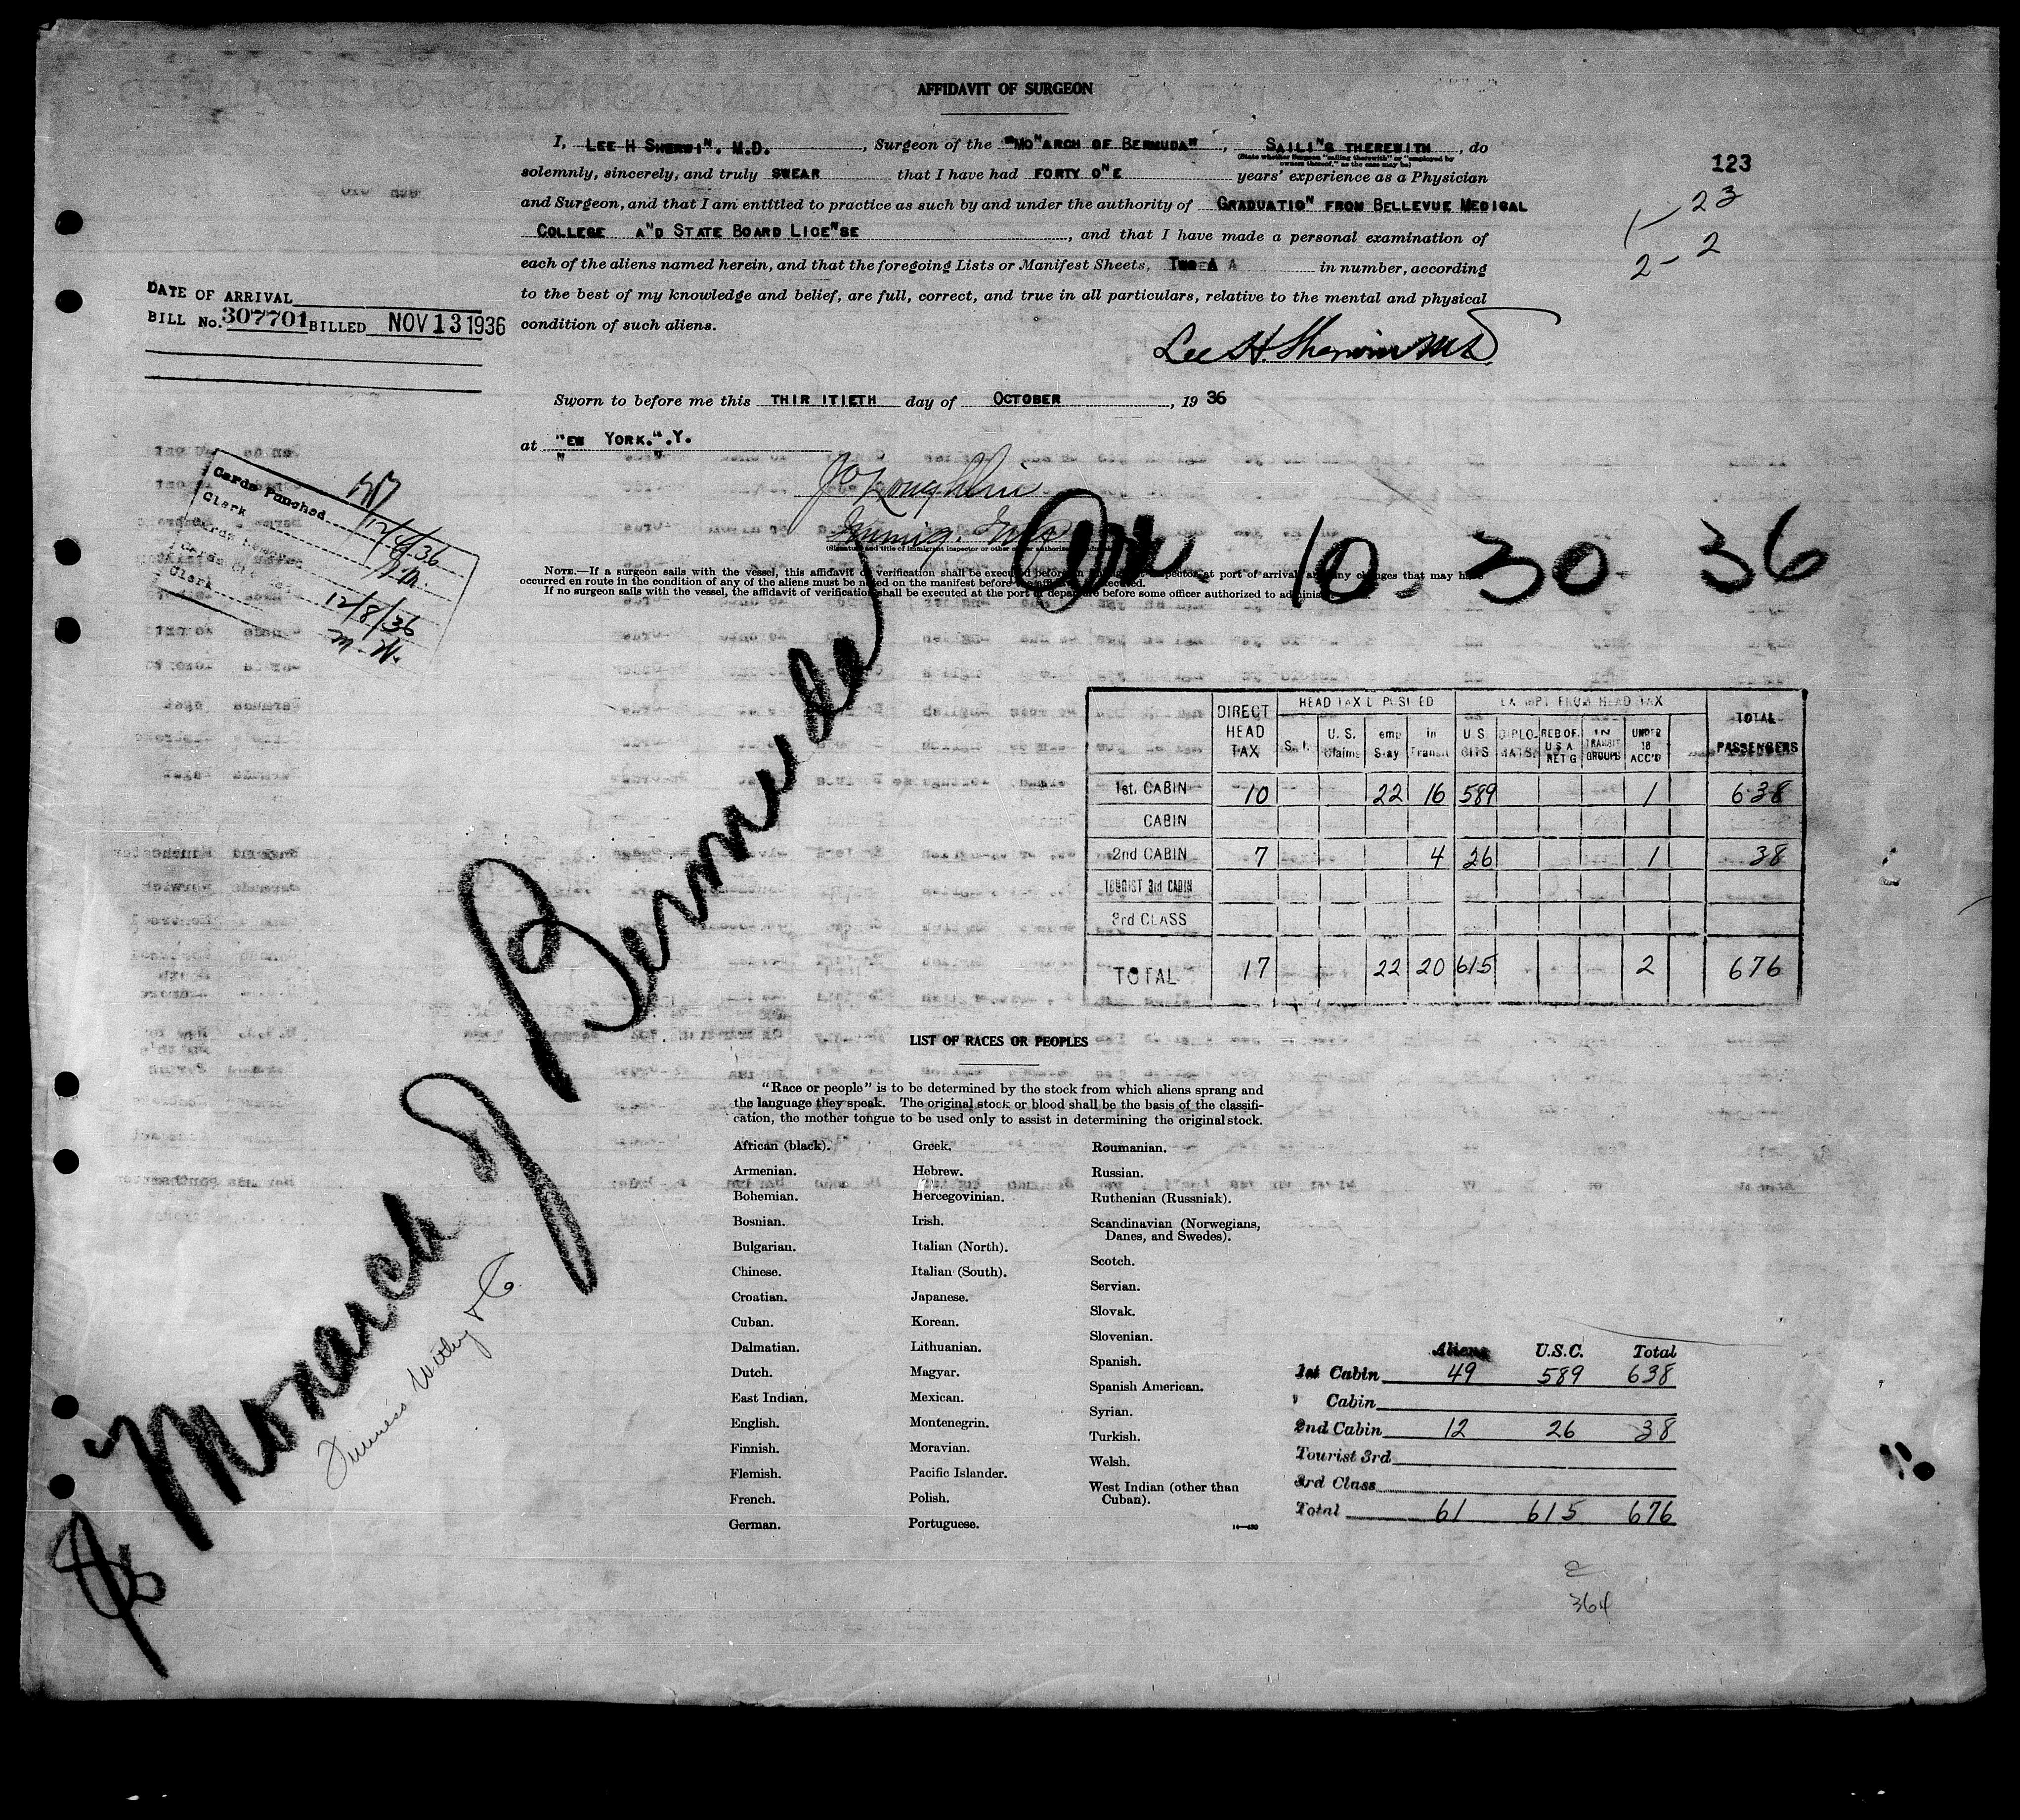 AFFIDAVIT OF SURGEON
I, LEE H SHERWIN. M.D. , Surgeon of the "MONARCH OF BERMUDA" , SAILING THEREWITH , do
(State whether Surgeon "sailing therewith" or "employed by
owners thereof," as the case may be)
solemnly, sincerely, and truly SWEAR that I have had FORTY ONE years' experience as a Physician
and Surgeon, and that I am entitled to practice as such by and under the authority of GRADUATION FROM BELLEVUE MEDICAL
COLLEGE AND STATE BOARD LICENSE , and that I have made a personal examination of
each of the aliens named herein, and that the foregoing Lists or Manifest Sheets, in number, according
to the best of my knowledge and belief, are full, correct, and true in all particulars, relative to the mental and physical
condition of such aliens.
Lee H. Sherwin MD
123
1 - 23
2 - 2
DATE OF ARRIVAL
BILL No. 307701 BILLED NOV 13 1936
Sworn to before me this THIR ITIETH day of OCTOBER , 19 36
at NEW YORK. N.Y.
Immig. Insp
(Signature and title of immigrant inspector or other officer authorized
Cards Punched 12/4/36
Clerk
Clerk
12/8/36
M. H.
Arr. 10 - 30 - 36
NOTE.—If a surgeon sails with the vessel, this affidavit of verification shall be executed before an inspector at port of arrival, any changes that may have
occurred en route in the condition of any of the aliens must be noted on the manifest before the affidavit is executed.
If no surgeon sails with the vessel, the affidavit of verification shall be executed at the port of departure before some officer authorized to administer
SS Monarch of Bermuda
Furness Withy & Co
DIRECT HEAD TAX HEAD TAX DEPOSITED EXEMPT FROM HEAD TAX TOTAL PASSENGERS
S.I. U.S. Claims Temp Stay in Transit U.S. CITS DIPLOMATS REB OF. U.S.A RET'G IN TRANSIT GROUPS UNDER 16 ACC'D
1st. CABIN 10 22 16 589 1 638
CABIN
2nd CABIN 7 4 26 1 38
TOURIST 3rd CABIN
3rd CLASS
TOTAL 17 22 20 615 2 676
LIST OF RACES OR PEOPLES
"Race or people" is to be determined by the stock from which aliens sprang and
the language they speak. The original stock or blood shall be the basis of the classifi-
cation, the mother tongue to be used only to assist in determining the original stock.
African (black).
Armenian.
Bohemian.
Bosnian.
Bulgarian.
Chinese.
Croatian.
Cuban.
Dalmatian.
Dutch.
East Indian.
English.
Finnish.
Flemish.
French.
German.
Greek.
Hebrew.
Hercegovinian.
Irish.
Italian (North).
Italian (South).
Japanese.
Korean.
Lithuanian.
Magyar.
Mexican.
Montenegrin.
Moravian.
Pacific Islander.
Polish.
Portuguese.
Roumanian.
Russian.
Ruthenian (Russniak).
Scandinavian (Norwegians,
Danes, and Swedes).
Scotch.
Servian.
Slovak.
Slovenian.
Spanish.
Spanish American.
Syrian.
Turkish.
Welsh.
West Indian (other than
Cuban).
14—480
Aliens U.S.C. Total
1st Cabin 49 589 638
Cabin
2nd Cabin 12 26 38
Tourist 3rd
3rd Class
Total 61 615 676
2
364